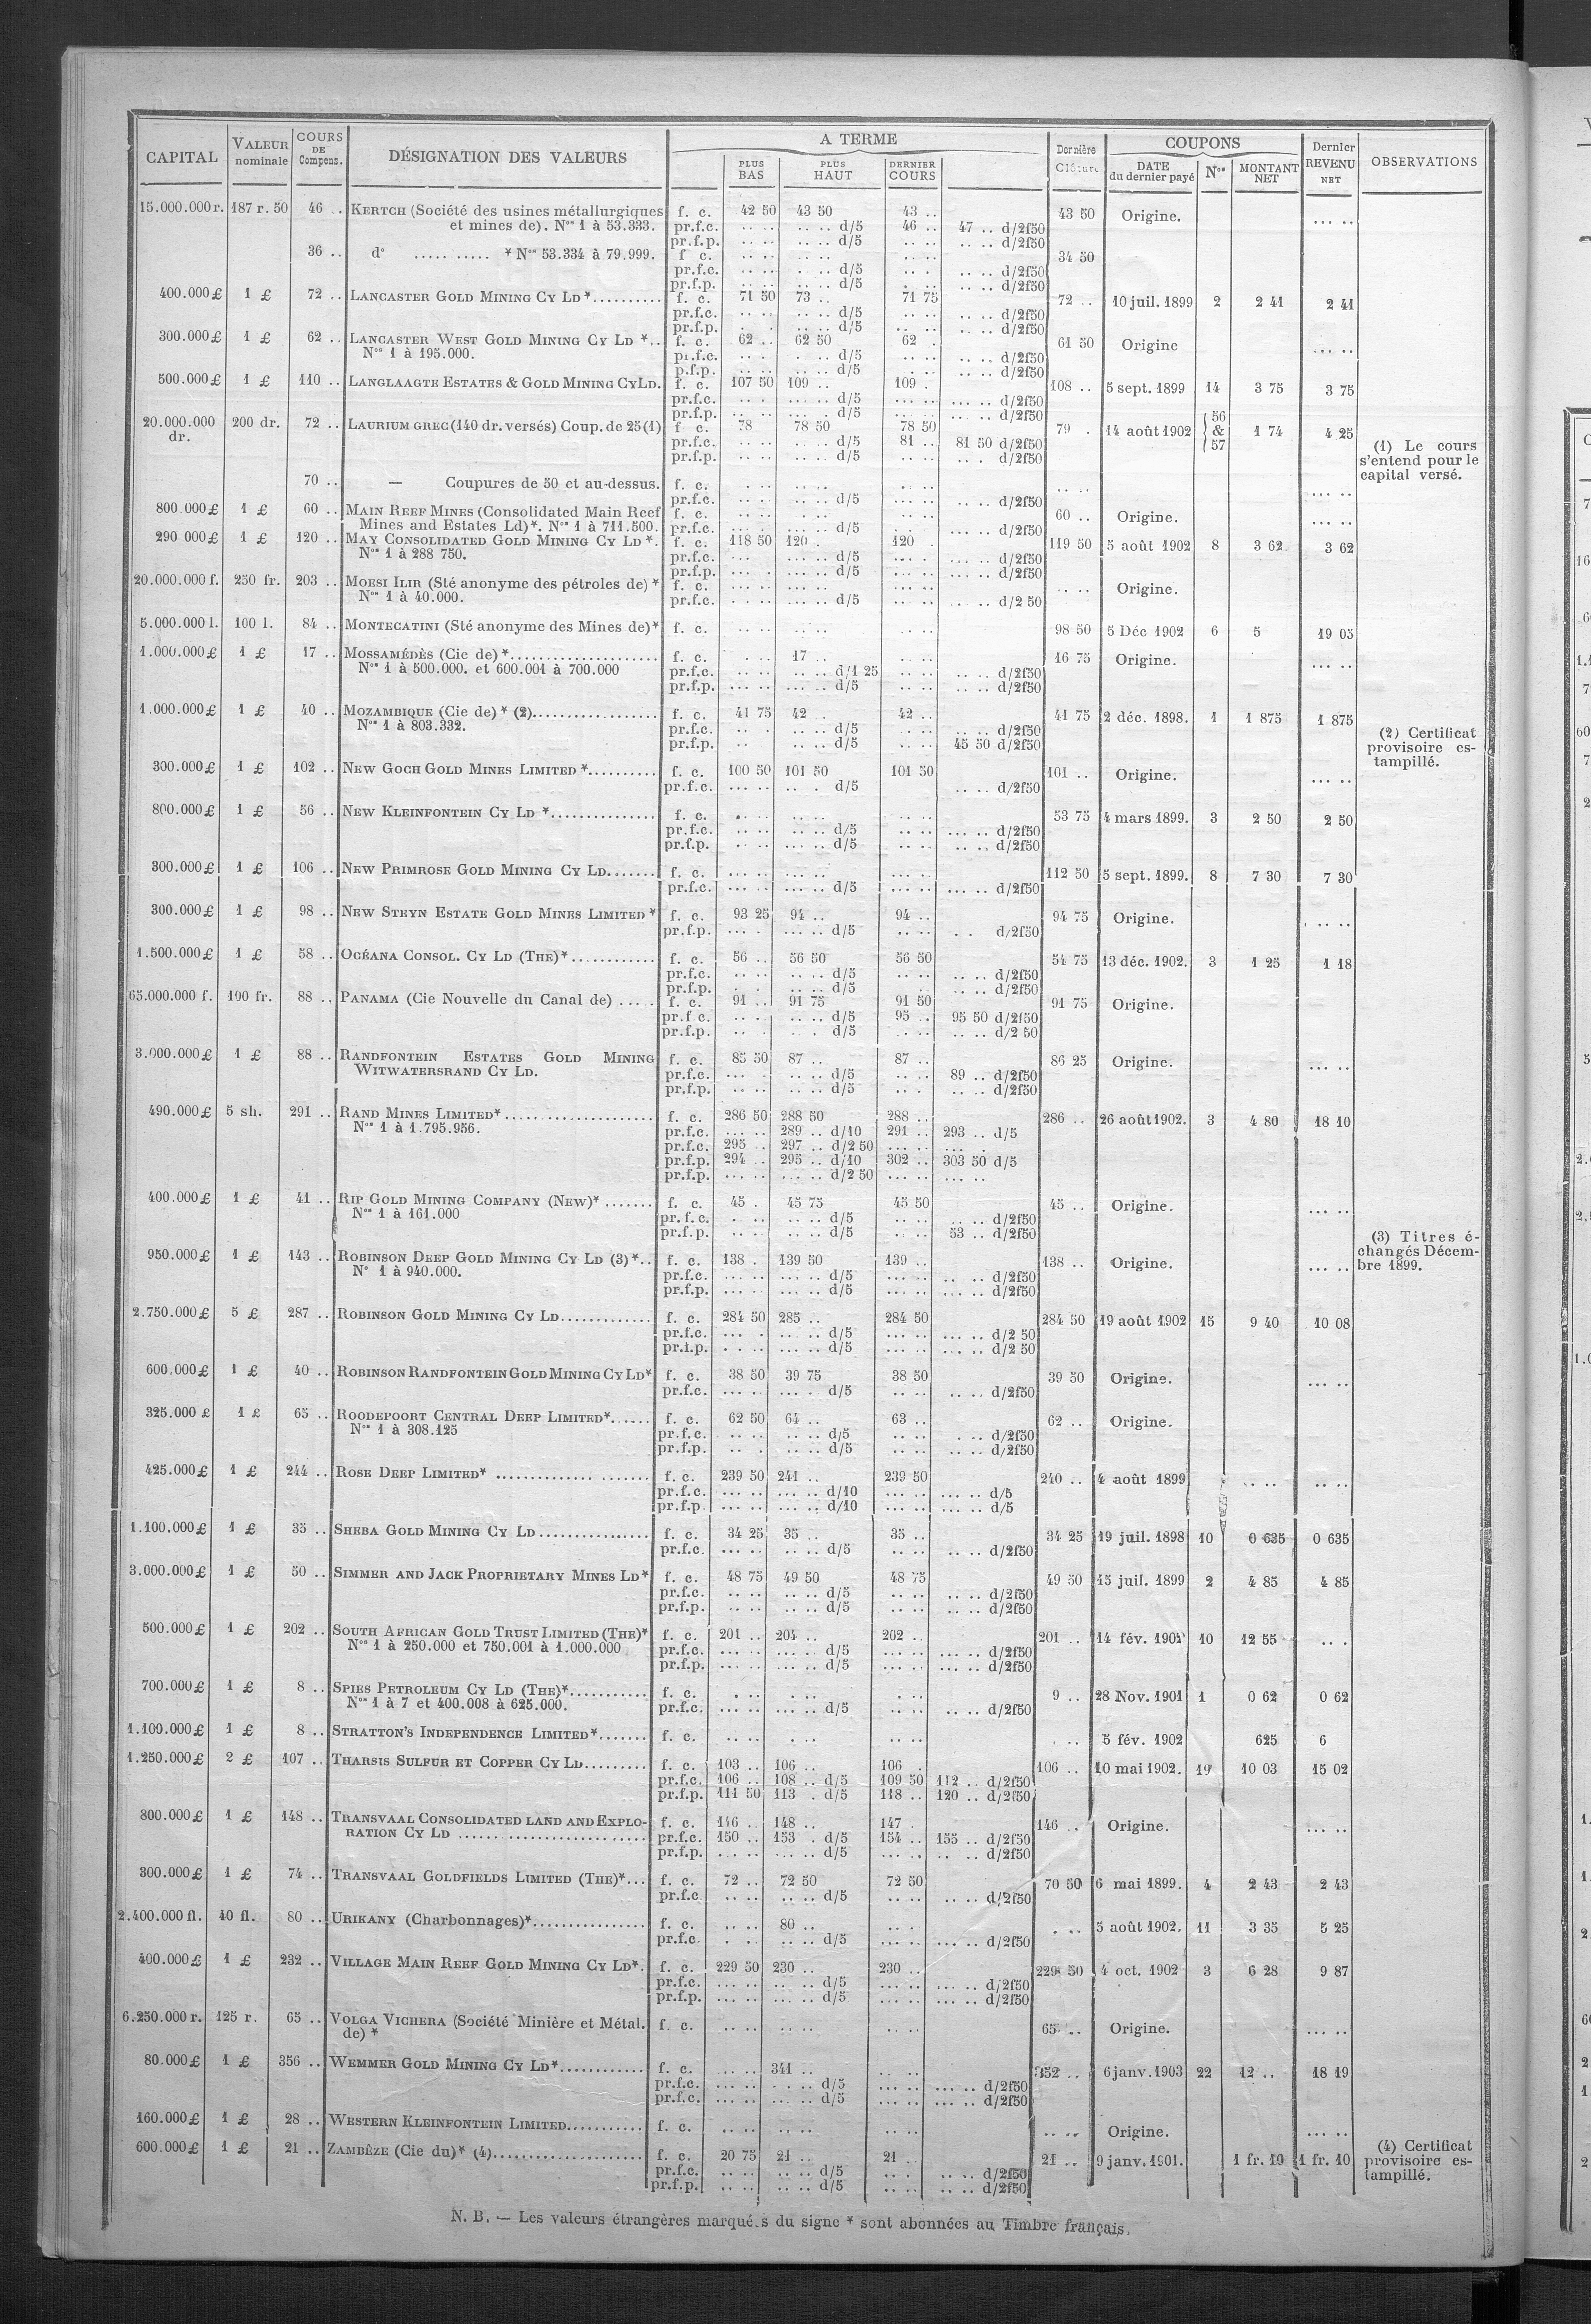 CAPITAL | VALEUR nominale | COURS DE Compens. | DÉSIGNATION DES VALEURS | A TERME | PLUS BAS | PLUS HAUT | DERNIER COURS | Dernière Clôture | COUPONS | DATE du dernier payé | Nos | MONTANT NET | Dernier REVENU NET | OBSERVATIONS
15.000.000 r. 187 r. 50 46 .. KERTCH (Société des usines métallurgiques f. c. 42 50 43 50 43 .. 43 50 Origine. ... ..
et mines de). Nos 1 à 53.333. pr.f.c. .. .. .. .. d/5 46 .. 47 .. d/2f50
pr.f.p. .. .. .. .. d/5 .. .. .. .. d/2f50
36 .. do ..... ..... * Nos 53.334 à 79.999. f c. .. .. .. .. .. .. 34 50
pr.f.c. .. .. . .. d/5 .. . .. .. d/2f50
pr.f.p. .. .. .. .. d/5 . .. .. .. d/2f50
400.000 £ 1 £ 72 .. LANCASTER GOLD MINING CY LD *.......... f. c. 71 50 73 .. 71 75 72 .. 10 juil. 1899 2 2 41 2 41
pr.f.c. .. .. .. .. d/5 .. .. .. .. d/2f50
pr.f.p. . . .. .. d/5 .. .. .. .. d/2f50
300.000 £ 1 £ 62 .. LANCASTER WEST GOLD MINING CY LD *.. f. c. 62 .. 62 50 62 . 61 50 Origine ... ..
Nos 1 à 195.000. pr.f.c. .. . . .. d/5 .. .. .. .. d/2f50
p.f.p. .. .. .. .. d/5 . .. .. .. d/2f50
500.000 £ 1 £ 110 .. LANGLAAGTE ESTATES & GOLD MINING CY LD. f. c. 107 50 109 .. 109 . 108 .. 5 sept. 1899 14 3 75 3 75
pr.f.c. .. . .. .. d/5 ... .. ... .. d/2f50
pr.f.p. .. .. . .. d/5 .. .. .. .. d/2f50
20.000.000 dr. 200 dr. 72 .. LAURIUM GREC (140 dr. versés) Coup. de 25 (1) f c. 78 78 50 78 50 79 . 14 août 1902 56 & 57 1 74 4 25
pr.f.c. .. .. . .. d/5 81 .. 81 50 d/2f50
pr.f.p. .. .. .. .. d/5 .. .. .. . d/2f50
(1) Le cours
s'entend pour le
capital versé.
70 .. — Coupures de 50 et au-dessus. f. c. .. .. .. .. . .. .. .. ... ..
pr.f.c. .. . .. .. d/5 ... .. .. .. d/2f50
800.000 £ 1 £ 60 .. MAIN REEF MINES (Consolidated Main Reef f. c. .. .. .. .. .. .. 60 .. Origine. ... ..
Mines and Estates Ld)*. Nos 1 à 711.500. pr.f.c. ... . ... .. d/5 .. .. ... .. d/2f50
290 000 £ 1 £ 120 .. MAY CONSOLIDATED GOLD MINING CY LD *. f. c. 118 50 120 . 120 . 119 50 5 août 1902 8 3 62 3 62
Nos 1 à 288 750. pr.f.c. ... ... .. d/5 ... .. ... .. d/2f50
pr.f.p. ... .. ... . d/5 ... . ... .. d/2f50
20.000.000 f. 250 fr. 203 .. MOESI ILIR (Sté anonyme des pétroles de) * f. c. .. .. ... .. .. .. .. .. Origine.
Nos 1 à 40.000. pr.f.c. . .. ... .. d/5 .. .. .. .. d/2 50
5.000.000 l. 100 l. 84 .. MONTECATINI (Sté anonyme des Mines de)* f. c. .. .. .. .. . .. 98 50 5 Déc 1902 6 5 19 05
1.000.000 £ 1 £ 17 .. MOSSAMÉDÈS (Cie de) *..................... f. c. . .. 17 .. . .. 16 75 Origine. ... ..
Nos 1 à 500.000. et 600.001 à 700.000 pr.f.c. .. .. .. .. d/1 25 .. .. .. .. d/2f50
pr.f.p. ... .. ... .. d/5 .. .. .. .. d/2f50
1.000.000 £ 1 £ 40 .. MOZAMBIQUE (Cie de) * (2).................. f. c. 41 75 42 .. 42 .. 41 75 2 déc. 1898. 1 1 875 1 875
Nos 1 à 803.332. pr.f.c. .. . .. .. d/5 .. .. .. .. d/2f50
pr.f.p. .. .. .. d/5 .. .. 45 50 d/2f50
(2) Certificat
provisoire es-
tampillé.
300.000 £ 1 £ 102 .. NEW GOCH GOLD MINES LIMITED *.......... f. c. 100 50 101 50 101 50 101 .. Origine. ... ..
pr.f.c. ... .. .. . d/5 .. .. d/2f50
800.000 £ 1 £ 56 .. NEW KLEINFONTEIN CY LD *............... f. c. . .. .. .. .. .. 53 75 4 mars 1899. 3 2 50 2 50
pr.f.c. .. .. ... .. d/5 .. .. ... .. d/2f50
pr.f.p. . .. ... .. d/5 .. .. .. .. d/2f50
300.000 £ 1 £ 106 .. NEW PRIMROSE GOLD MINING CY LD....... f. c. ... .. ... .. ... .. 112 50 5 sept. 1899. 8 7 30 7 30
pr.f.c. ... .. ... .. d/5 ... .. ... .. d/2f50
300.000 £ 1 £ 98 .. NEW STEYN ESTATE GOLD MINES LIMITED * f. c. 93 25 94 .. 94 .. 94 75 Origine. . .. ..
pr.f.p. ... . ... .. d/5 .. .. . . d/2f50
1.500.000 £ 1 £ 58 .. OCÉANA CONSOL. CY LD (THE)*............ f. c. 56 .. 56 50 56 50 54 75 13 déc. 1902. 3 1 25 1 18
pr.f.c. .. .. .. .. d/5 .. .. .. .. d/2f50
pr.f.p. . . .. .. d/5 .. .. .. .. d/2f50
65.000.000 f. 100 fr. 88 .. PANAMA (Cie Nouvelle du Canal de) ..... f. c. 91 .. 91 75 91 50 91 75 Origine.
pr.f c. .. . .. .. d/5 95 .. 95 50 d/2f50
pr.f.p. .. . . . d/5 . .. .. .. d/2 50
3.000.000 £ 1 £ 88 .. RANDFONTEIN ESTATES GOLD MINING f. c. 85 50 87 .. 87 .. 86 25 Origine. ... ..
WITWATERSRAND CY LD. pr.f.c. ... . .. .. d/5 .. . 89 .. d/2f50
pr.f.p. .. .. .. .. d/5 .. . .. .. d/2f50
490.000 £ 5 sh. 291 .. RAND MINES LIMITED*..................... f. c. 286 50 288 50 288 .. 286 .. 26 août 1902. 3 4 80 18 10
Nos 1 à 1.795.956. pr.f.c. ... .. 289 .. d/10 291 .. 293 .. d/5
pr.f.c. 295 .. 297 .. d/2 50 ... .. ... .
pr.f.p. 294 .. 295 .. d/10 302 .. 303 50 d/5
pr.f.p. ... .. ... .. d/2 50 ... .. ... ..
400.000 £ 1 £ 41 .. RIP GOLD MINING COMPANY (NEW)* ....... f. c. 45 . 45 75 45 50 45 .. Origine. ... ..
Nos 1 à 161.000 pr.f.c. . .. .. .. d/5 .. .. .. .. d/2f50
pr.f.p. . .. .. .. d/5 . .. 53 .. d/2f50
950.000 £ 1 £ 143 .. ROBINSON DEEP GOLD MINING CY LD (3)*.. f. c. 138 . 139 50 139 .. 138 .. Origine. ... ..
No 1 à 940.000. pr.f.c. ... .. ... .. d/5 ... .. .. .. d/2f50
pr.f.p. ... .. ... .. d/5 ... .. ... .. d/2f50
(3) Titres é-
changés Décem-
bre 1899.
2.750.000 £ 5 £ 287 .. ROBINSON GOLD MINING CY LD............. f. c. 284 50 285 .. 284 50 284 50 19 août 1902 15 9 40 10 08
pr.f.c. ... . ... .. d/5 ... .. ... .. d/2 50
pr.f.p. . .. ... .. d/5 ... .. ... .. d/2 50
600.000 £ 1 £ 40 .. ROBINSON RANDFONTEIN GOLD MINING CY LD* f. c. 38 50 39 75 38 50 39 50 Origine. ... ..
pr.f.c. ... .. ... . d/5 .. .. .. .. d/2f50
325.000 £ 1 £ 65 .. ROODEPOORT CENTRAL DEEP LIMITED*...... f. c. 62 50 64 .. 63 .. 62 .. Origine.
Nos 1 à 308.125 pr.f.c. .. .. .. .. d/5 .. .. . .. d/2f50
pr.f.p. .. . .. .. d/5 .. .. .. .. d/2f50
425.000 £ 1 £ 244 .. ROSE DEEP LIMITED* .............. ....... f. c. 239 50 241 .. 239 50 240 .. 4 août 1899 .. .. .. ..
pr.f.c. ... .. ... .. d/10 ... .. ... .. d/5
pr.f.p ... .. ... .. d/10 ... .. ... .. d/5
1.100.000 £ 1 £ 35 .. SHEBA GOLD MINING CY LD ................ f. c. 34 25 35 .. 35 .. 34 25 19 juil. 1898 10 0 635 0 635
pr.f.c. ... .. .. .. d/5 .. .. .. .. d/2f50
3.000.000 £ 1 £ 50 .. SIMMER AND JACK PROPRIETARY MINES LD* f. c. 48 75 49 50 48 75 49 50 15 juil. 1899 2 4 85 4 85
pr.f.c. .. .. .. .. d/5 .. .. .. .. d/2f50
pr.f.p. .. .. .. .. d/5 .. .. .. .. d/2f50
500.000 £ 1 £ 202 .. SOUTH AFRICAN GOLD TRUST LIMITED (THE)* f. c. 201 .. 204 .. 202 .. 201 .. 14 fév. 10 12 55 .. .
Nos 1 à 250.000 et 750.001 à 1.000.000 pr.f.c. ... .. ... .. d/5 ... .. ... .. d/2f50
pr.f.p. ... .. ... .. d/5 ... .. ... .. d/2f50
700.000 £ 1 £ 8 .. SPIES PETROLEUM CY LD (THE)*........... f. c. . .. . .. . .. 9 .. 28 Nov. 1901 1 0 62 0 62
Nos 1 à 7 et 400.008 à 625.000. pr.f.c. ... .. ... .. d/5 .. .. .. .. d/2f50
1.100.000 £ 1 £ 8 .. STRATTON'S INDEPENDENCE LIMITED*....... f. c. .. .. . .. .. .. . .. 5 fév. 1902 625 6
1.250.000 £ 2 £ 107 .. THARSIS SULFUR ET COPPER CY LD......... f. c. 103 .. 106 .. 106 . 106 .. 10 mai 1902. 19 10 03 15 02
pr.f.c. 106 .. 108 .. d/5 109 50 112 .. d/2f50
pr.f.p. 111 50 113 . d/5 118 .. 120 .. d/2f50
800.000 £ 1 £ 148 .. TRANSVAAL CONSOLIDATED LAND AND EXPLO- f. c. 146 .. 148 .. 147 . 146 .. Origine. ... ..
RATION CY LD ...... .................... pr.f.c. 150 .. 153 . d/5 154 .. 155 .. d/2f50
pr.f.p. . .. ... .. d/5 ... .. .. .. d/2f50
300.000 £ 1 £ 74 .. TRANSVAAL GOLDFIELDS LIMITED (THE)*... f. c. 72 .. 72 50 72 50 70 50 6 mai 1899. 4 2 43 2 43
pr.f.c .. .. .. .. d/5 .. .. .. .. d/2f50
2.400.000 fl. 40 fl. 80 .. URIKANY (Charbonnages)*................ f. c. .. .. 80 .. .. . . .. 5 août 1902. 11 3 35 5 25
pr.f.c . .. .. .. d/5 .. .. ... .. d/2f50
400.000 £ 1 £ 232 .. VILLAGE MAIN REEF GOLD MINING CY LD*. f. c. 229 50 230 .. 230 .. 229 50 4 oct. 1902 3 6 28 9 87
pr.f.c. ... .. .. .. d/5 ... .. ... .. d/2f50
pr.f.p. ... .. ... .. d/5 ... .. ... .. d/2f50
6.250.000 r. 125 r. 65 .. VOLGA VICHERA (Société Minière et Métal. f. c. .. .. .. .. .. .. 65 .. Origine. ... ..
de) *
80.000 £ 1 £ 356 .. WEMMER GOLD MINING CY LD*............ f. c. .. .. 341 .. .. .. 352 .. 6 janv. 1903 22 12 .. 18 19
pr.f.c. ... .. . .. d/5 ... .. ... .. d/2f50
pr.f.c. ... .. ... .. d/5 ... .. ... .. d/2f50
160.000 £ 1 £ 28 .. WESTERN KLEINFONTEIN LIMITED........... f. c. .. .. .. .. .. .. .. .. Origine. ... ..
600.000 £ 1 £ 21 .. ZAMBÈZE (Cie du)* (4)..................... f. c. 20 75 21 .. 21 . 21 .. 9 janv. 1901. 1 fr. 10 1 fr. 10
pr.f.c. .. .. .. .. d/5 .. . .. .. d/2f50
pr.f.p. .. .. .. .. d/5 .. .. .. .. d/2f50
(4) Certificat
provisoire es-
tampillé.
N. B. — Les valeurs étrangères marqué.s du signe * sont abonnées au Timbre français.